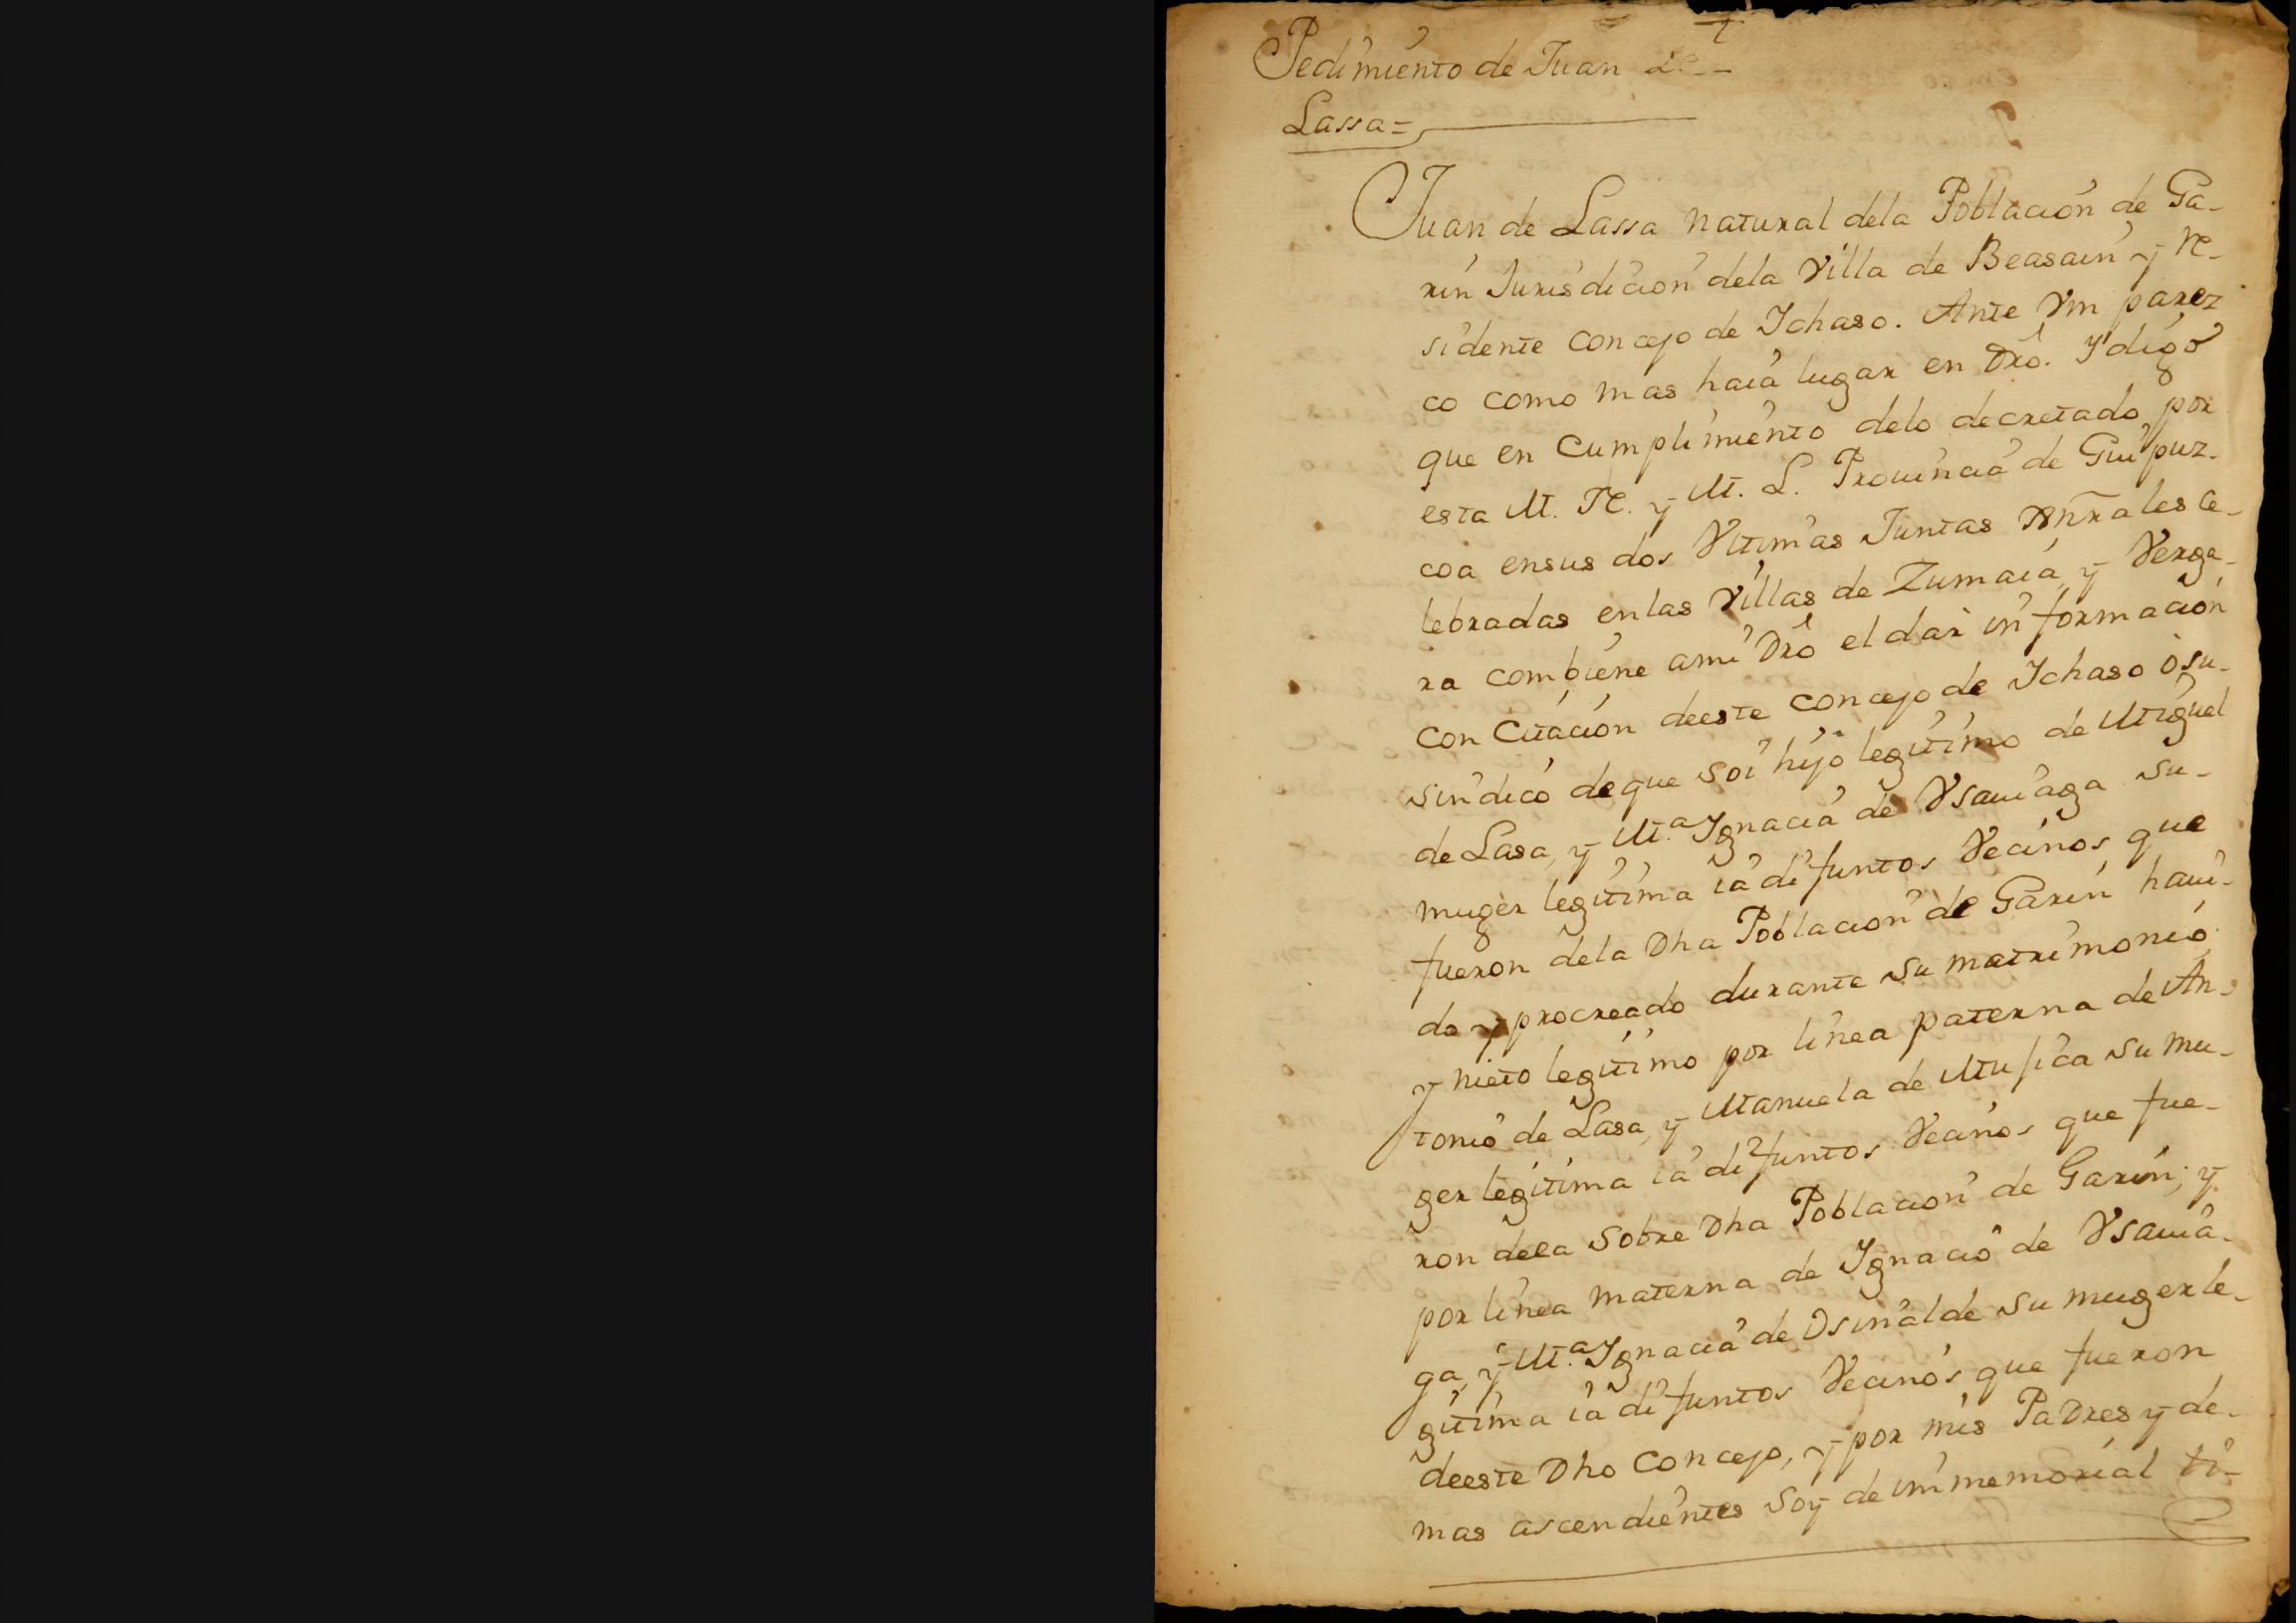 Pedimiento de Juan de
Lassa=
Juan de Lassa natural dela Poblacion de Ga-
rin Jurisdicion dela Villa de Beasain y Re-
sidente concejo de Ichaso. Ante Vm parez
co como mas haia lugar en Dro. y digo
que en Cumplimiento delo decretado por
esta M. N. y M. L. Prouincia de Guipuz-
coa ensus dos Vltimas Juntas Gñrales ce-
lebradas enlas Villas de Zumaia, y Verga-
ra combiene ami Dro el dar informacion
con Citacion deeste concejo de Ichaso ò su-
sindico deque soi hijo legitimo de Miguel
de Lasa, y M.ª Ignacia de Vsauiaga su-
muger legitima ia difuntos Vecinos que
fueron dela Dha Poblacion de Garin haui-
do y procreado durante su matrimonio
y nieto legitimo por linea paterna de An-
tonio de Lasa, y Manuela de Mugica su mu-
ger legitima ia difuntos Vecinos que fue-
ron dela sobre Dha Poblacion de Garin; y
por linea materna de Ignacio de Vsauia-
ga, y M.ª Ignacia de Osinalde su muger le-
gitima ia difuntos Vecinos que fueron
deeste Dho Concejo, y por mis Padres y de-
mas ascendientes soy de immemorial ti-